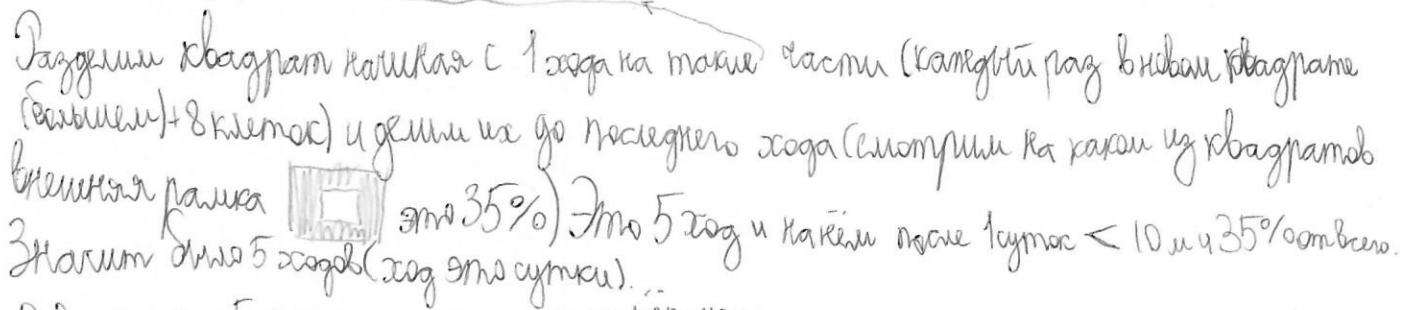 Разделим квадрат начиная с 1 хода на такие части (каждый раз в новом квадрате
(большем)+8 клеток) и делим их до последнего хода (смотрим на каком из квадратов
внешняя рамка это 35%) Это 5 ход и на нём после 1 суток < 10 м и 35% от всего.
Значит было 5 ходов (ход это сутки).